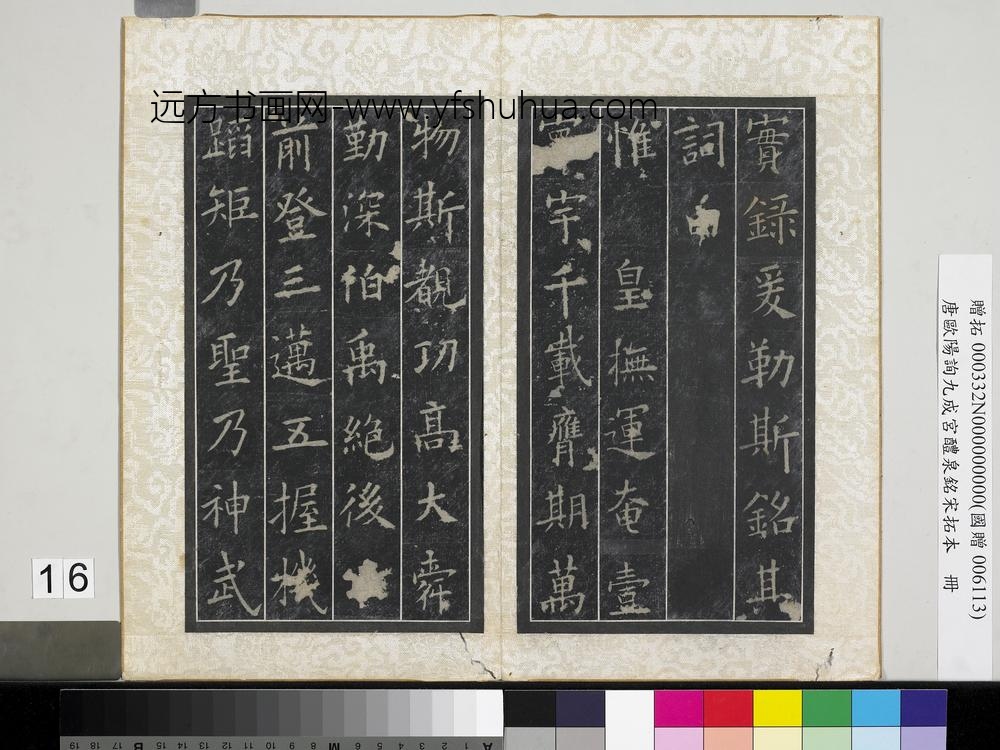 远方书画网-www.yfshuhua.com
實錄爰勒斯銘其
詞曰
惟 皇撫運奄壹
寰宇千載膺期萬
物斯覩功高大舜
勤深伯禹絕後
前登三邁五握機
蹈矩乃聖乃神武
贈拓 000332N000000000(國贈 006113)
唐歐陽詢九成宮醴泉銘宋拓本 冊
16
A 1 2 3 4 5 6 M 8 9 10 11 12 13 14 15 B 17 18 19